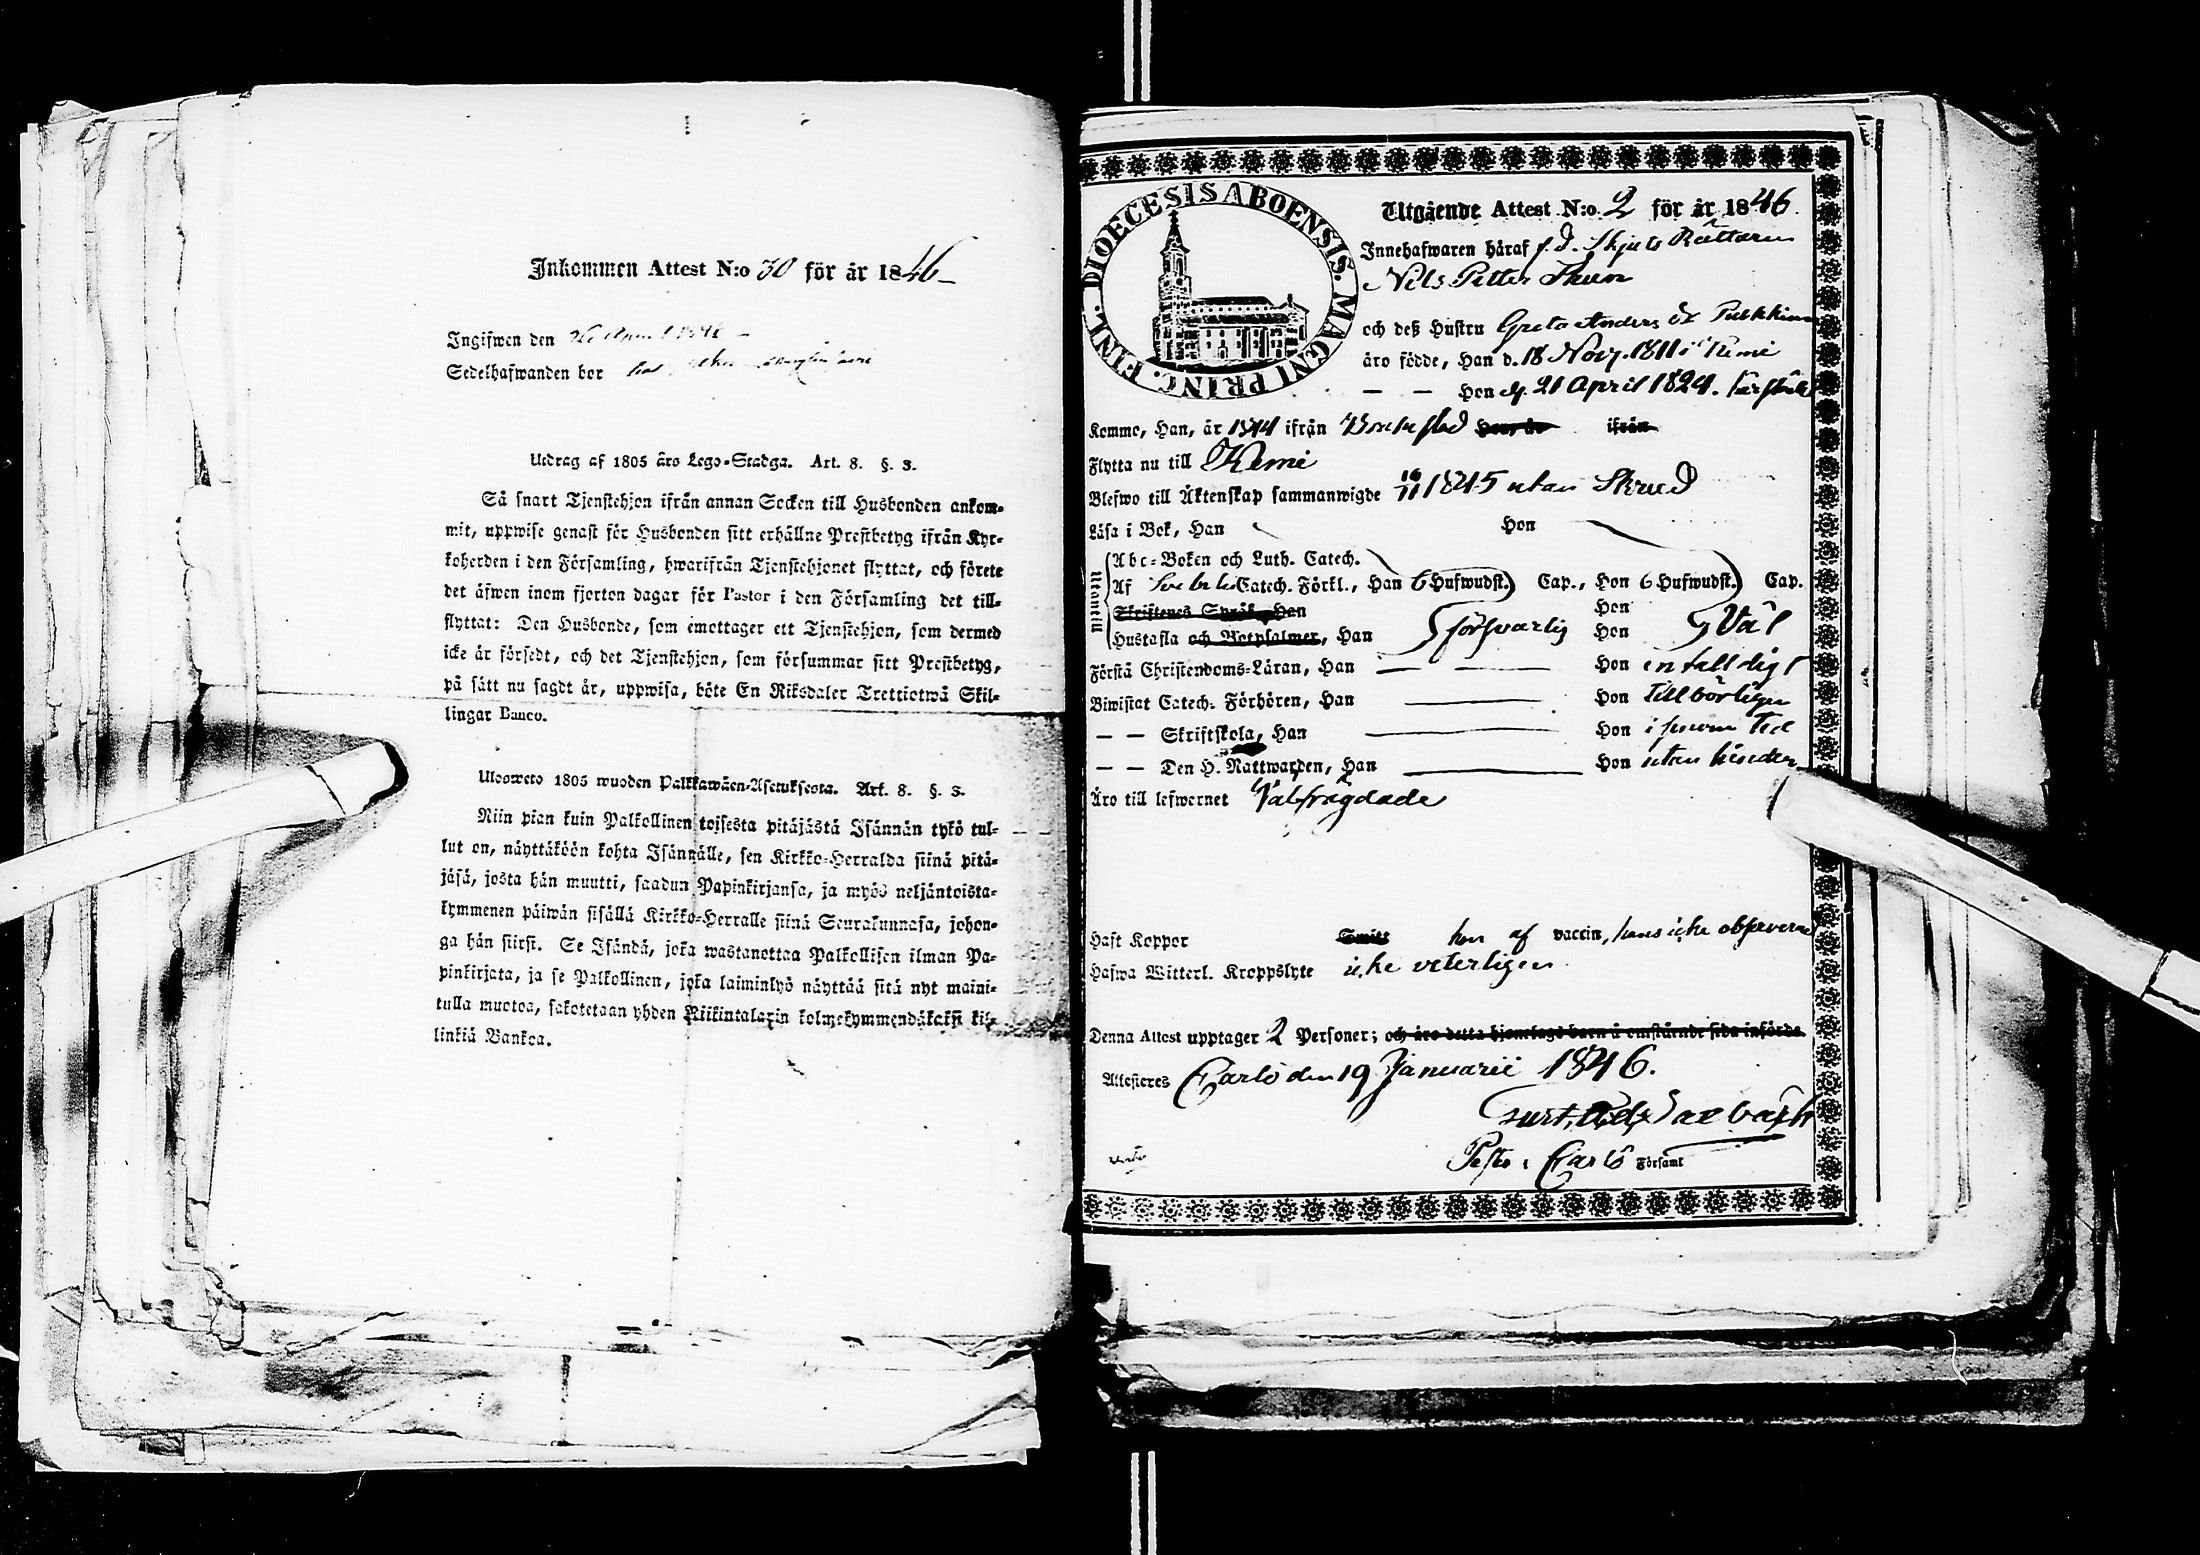 Inkommen Attest N:o 30 för år 1846
Ingifwen den 26 April 1846
Sedelhafwanden bor hos
Utdrag af 1805 års Lego-Stadga. Art. 8. §. 3.
Så snart Tjenstehjon ifrån annan Socken till Husbonden ankom-
mit, uppwise genast för Husbonden sitt erhållne Prestbetyg ifrån Kyr-
koherden i den Församling, hwarifrån Tjenstehjonet flyttat, och förete
det äfwen inom fjorton dagar för Pastor i den Församling det till-
flyttat: Den Husbonde, som emottager ett Tjenstehjon, som dermed
icke är försedt, och det Tjenstehjon, som försummar sitt Prestbetyg,
på sätt nu sagdt är, uppwisa, böte En Riksdaler Trettiotwå Skil-
lingar Banco.
Ulosweto 1805 wuoden Palkkawäen-Asetuksesta. Art. 8. §. 3.
Niin pian kuin Palkollinen toisesta pitäjästä Isännän tykö tul-
lut on, näyttäköön kohta Isännälle, sen Kirkko-Herralda siinä pitä-
jäsä, josta hän muutti, saadun Papinkirjansa, ja myös neljäntoista-
kymmenen päiwän sisällä Kirkko-Herralle siinä Seurakunnasa, johon-
ga hän siirsi. Se Isändä, joka wastanottaa Palkollisen ilman Pa-
pinkirjata, ja se Palkollinen, joka laiminlyö näyttää sitä nyt maini-
tulla muotoa, sakotetaan yhden Riikintalarin kolmekymmendäkaksi kil-
linkiä Bankoa.
DIOECESIS ABOENSIS. MAGNI PRINC. FINL.
Utgående Attest N:o 2 för år 1846.
Innehafwaren häraf f. d. Skjuts Rättaren
Nils Petter
och deß Hustru Greta Anders dr
äro födde, Han d. 18 Nov. 1811 i Kemi
— — Hon d. 21 April 1824.
Komne, Han, år 1844 ifrån Hon, år ifrån
Flytta nu till Kemi
Blefwo till Äktenskap sammanwigde 1845 utan Skrud
Läsa i Bok, Han Hon
Utantill
Abc-Boken och Luth. Catech.
Af Catech. Förkl., Han 6 Hufwudst. Cap., Hon 6 Hufwudst. Cap.
Skriftenes Språk, Han Hon
Hustafla och Botpsalmer, Han försvarlig Hon Väl
Förstå Christendoms-Läran, Han — — Hon enfalldigt
Biwistat Catech. Förhören, Han — Hon Tillbörligen
— — Skriftskola, Han — Hon i sinom Tid
— — Den H. Nattwarden, Han — Hon utan hinder
Äro till lefwernet Välfrägdade
Haft Koppor Smitt hon af vaccin, hans icke observerad
Hafwa Witterl. Kroppslyte icke veterligen
Denna Attest upptager 2 Personer; och äro detta hjonelags barn å omstående sida införde
Attesteres Carlö den 19 Januarii 1846.
i Carlö Församl